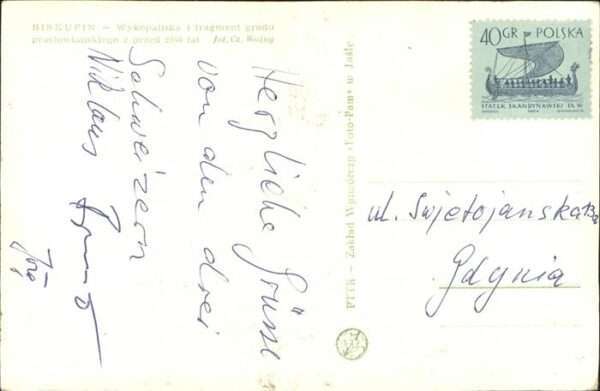 BISKUPIN — Wykopaliska i fragment grodu
prasłowiańskiego z przed 2500 lat fot. Cz. Woźny
Herzliche Grüsse
von den drei
Schweizern
Niklaus
Jörg
PTTK — Zakład Wytwórczy „Foto-Pam” w Jaśle
40 GR POLSKA
STATEK SKANDYNAWSKI IX W
ul. Swjetojanska
Gdynia